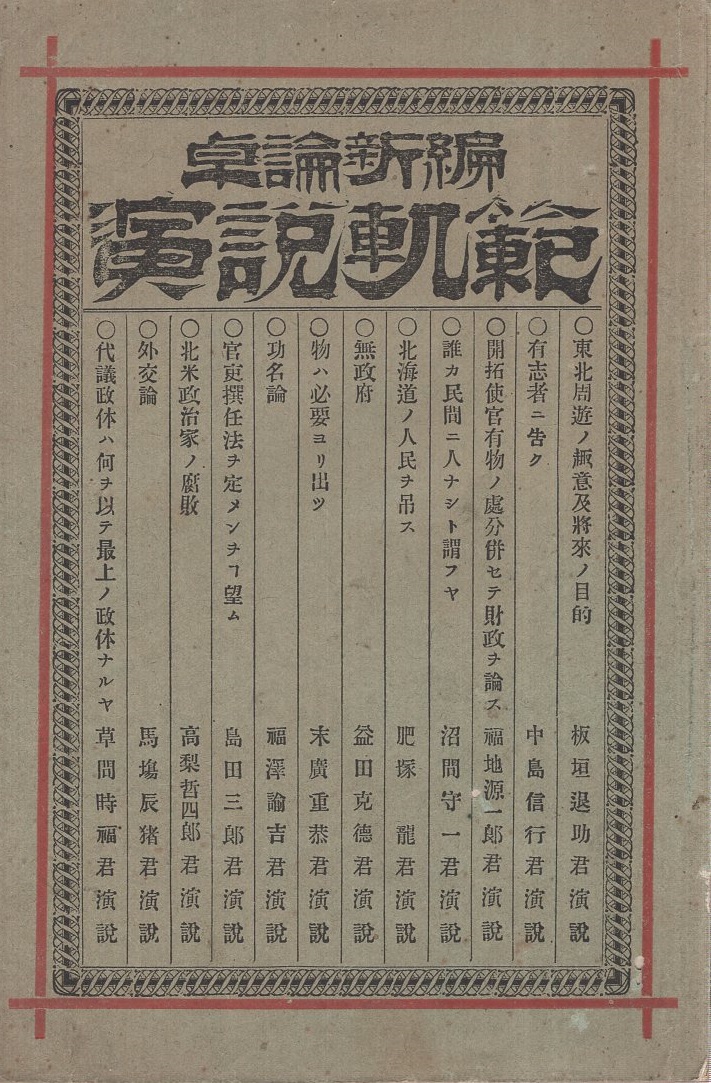 卓論新編
演説軌範
〇東北周遊ノ趣意及將來ノ目的 板垣退助君演說
〇有志者ニ告ク 中島信行君演說
〇開拓使官有物ノ處分併セテ財政ヲ論ス 福地源一郎君演說
〇誰カ民間ニ人ナシト謂フヤ 沼間守一君演說
〇北海道ノ人民ヲ吊ス 肥塚龍君演說
〇無政府 益田克德君演說
〇物ハ必要ヨリ出ツ 末廣重恭君演說
〇功名論 福澤諭吉君演說
〇官吏撰任法ヲ定メンヲヿ望ム 島田三郎君演說
〇北米政治家ノ腐敗 高梨哲四郎君演說
〇外交論 馬塲辰猪君演說
〇代議政体ハ何ヲ以テ最上ノ政体ナルヤ 草間時福君演說